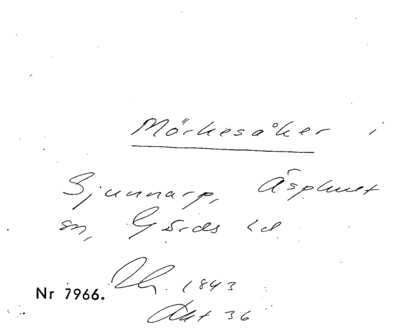 Mörkesåker i
Gjunnarp, Äsphult
sn, Gärds hd
1843
Nr 7966.
Akt 36